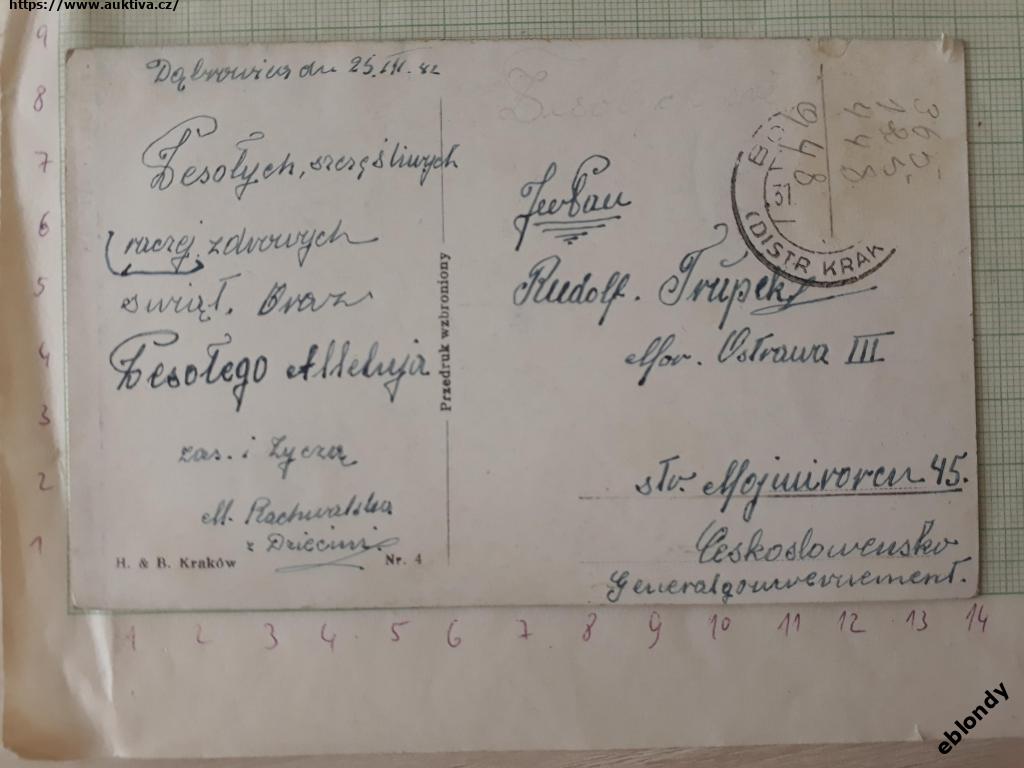 https://www.auktiva.cz/
9
8
7
6
5
4
3
2
1
Dąbrowica dn 25.III.42
Wesołych, szczęśliwych
raczej zdrowych
świąt. Oraz
Wesołego Alleluja
zas. i życzą
M. Rachwalska
z Dziećmi
H. & B. Kraków
Nr. 4
Przedruk wzbroniony
365,-
1825
948
948
31.
(DISTR. KRAK
Rudolf. Trupek
Mor. Ostrawa III
Mojmirovcu 45.
Českoslowensko
Generalgouvernement.
1 2 3 4 5 6 7 8 9 10 11 12 13 14
eblondy